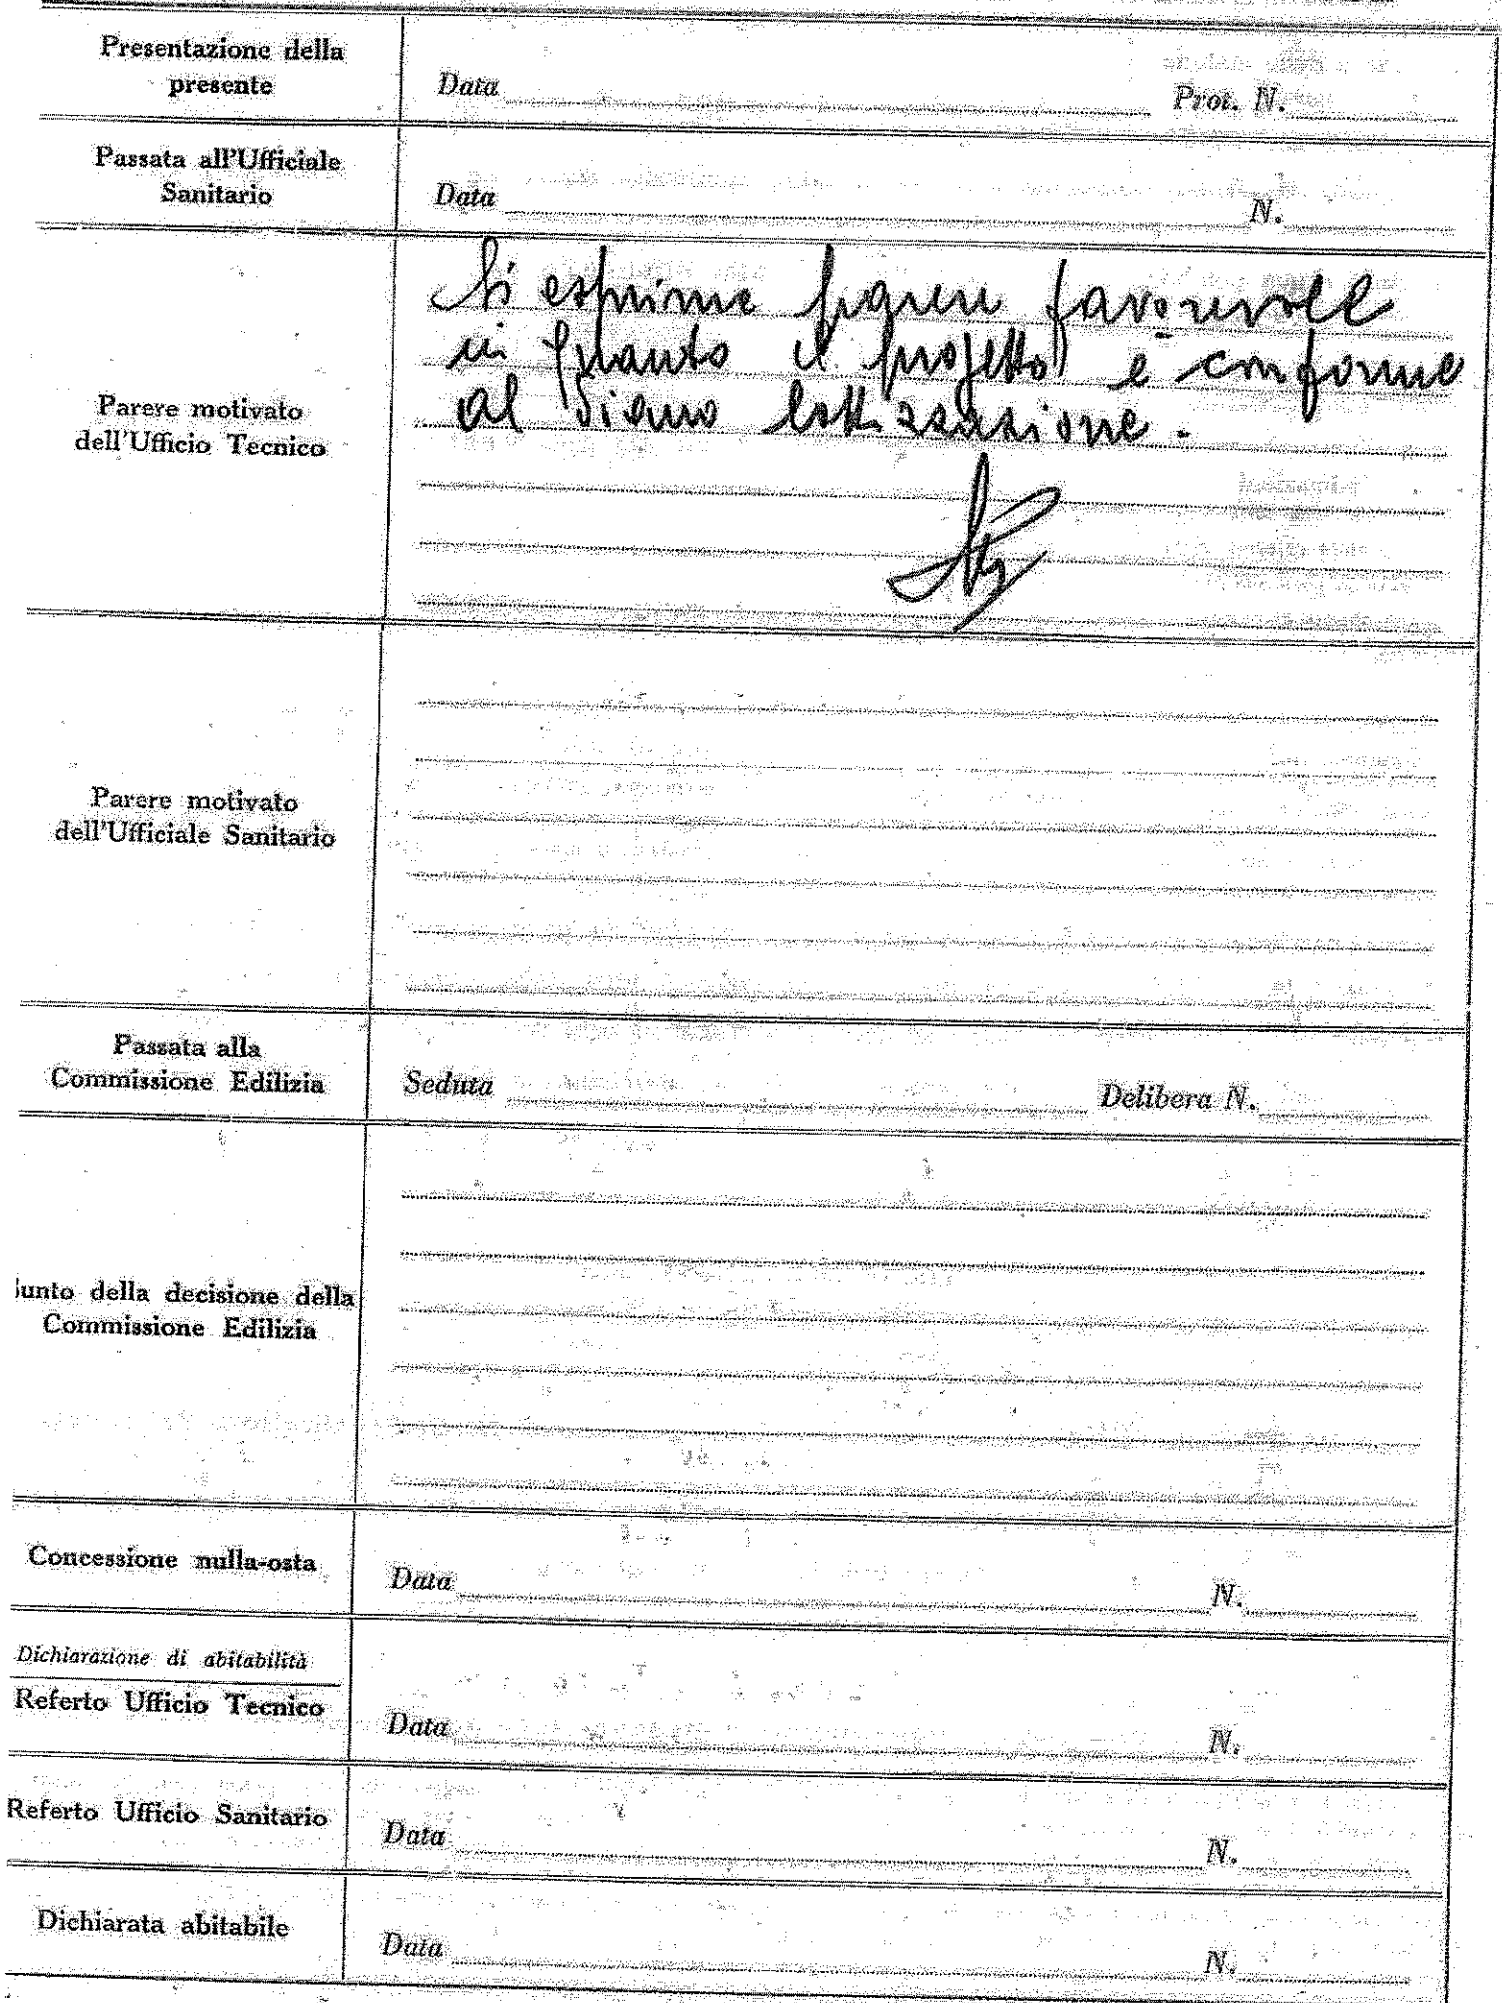 Presentazione della
presente
Data Prot. N.
Passata all'Ufficiale
Sanitario
Data N.
Parere motivato
dell'Ufficio Tecnico
Si esprime parere favorevole
in quanto il progetto è conforme
al Piano lottizzazione.
Parere motivato
dell'Ufficiale Sanitario
Passata alla
Commissione Edilizia
Seduta Delibera N.
unto della decisione della
Commissione Edilizia
Concessione nulla-osta
Data N.
Dichiarazione di abitabilità
Referto Ufficio Tecnico
Data N.
Referto Ufficio Sanitario
Data N.
Dichiarata abitabile
Data N.